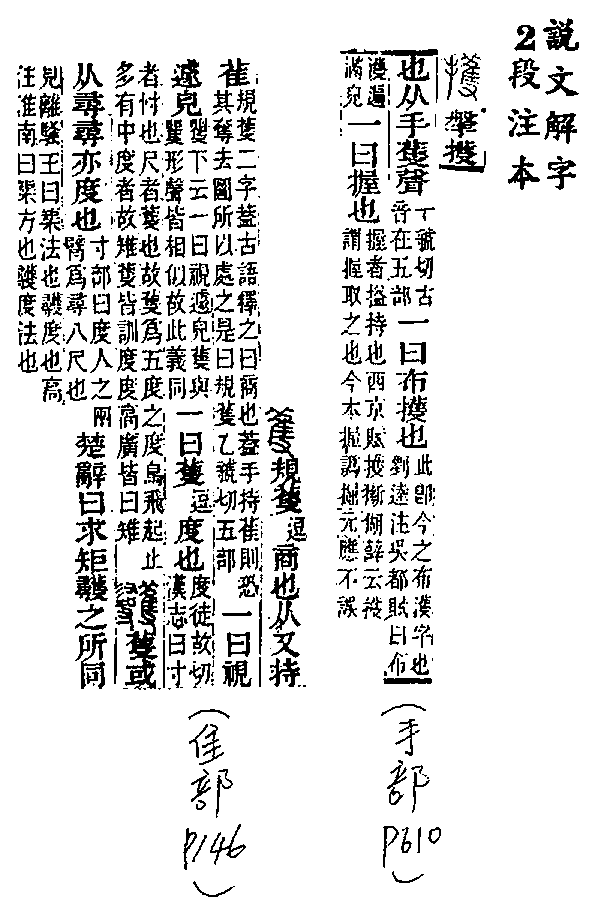 說文解字
2段注本
擭 擊擭
也从手蒦聲乙號切古音在五部一曰布擭也此卽今之布濩字也劉逵注吳都賦曰布
濩遍滿皃一曰握也握者搤持也西京賦擭獑猢薛云擭謂握取之也今本握譌掘元應不誤
(手部P610)
蒦 規蒦逗商也从又持
萑規蒦二字葢古語釋之曰商也葢手持萑則恐其奪去圖所以處之是曰規蒦乙號切五部一曰視
遽皃矍下云一曰視遽皃蒦與矍形聲皆相似故此義同一曰蒦逗度也度徒故切漢志曰寸
者忖也尺者蒦也故蒦爲五度之度鳥飛起止多有中度者故雉蒦皆訓度度高廣皆曰雉 彠 蒦或
从尋尋亦度也寸部曰度人之兩臂爲尋八尺也楚辭曰求矩彠之所同
見離騷王曰榘法也彠度也高注淮南曰榘方也彠度法也
(隹部P146)